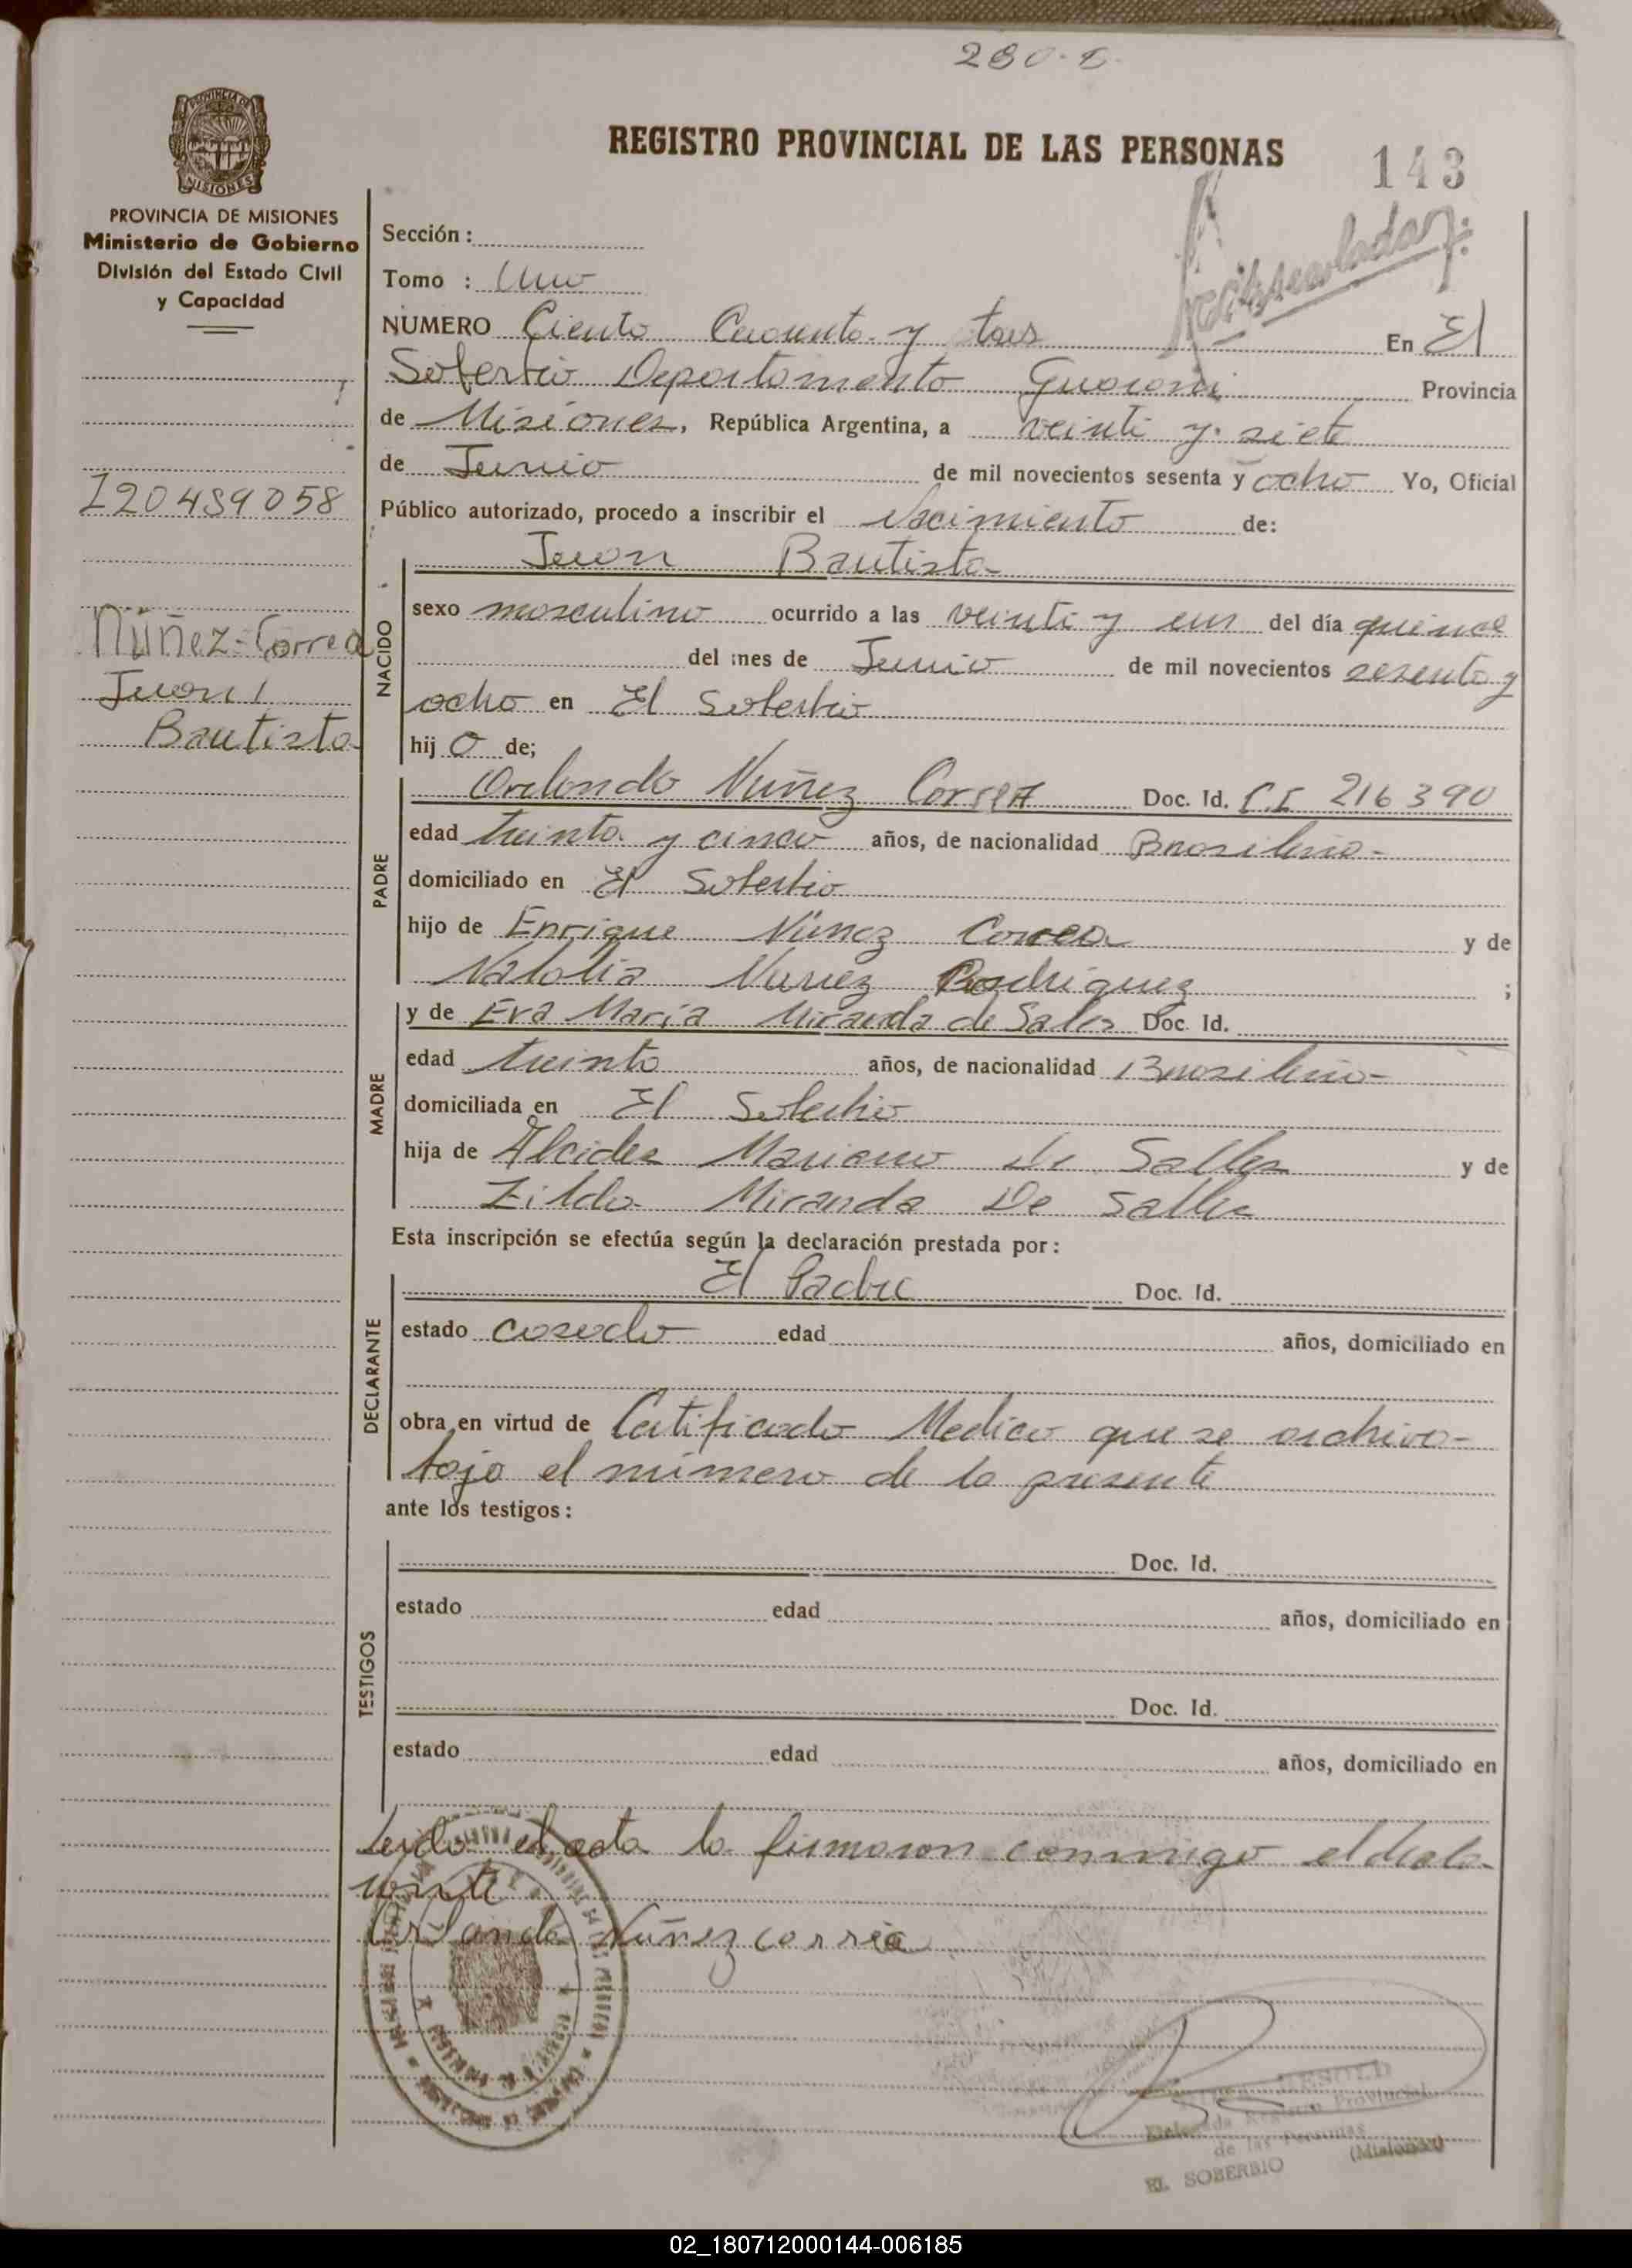 280-
REGISTRO PROVINCIAL DE LAS PERSONAS
143
PROVINCIA DE
MISIONES
PROVINCIA DE MISIONES
Ministerio de Gobierno
División del Estado Civil
y Capacidad
Sección :
Tomo : Uno
NUMERO Ciento Cuarenta y tres En El
Soberbio Departamento Guarani Provincia
de Misiones, República Argentina, a veinti y siete
de Junio de mil novecientos sesenta y ocho Yo, Oficial
Público autorizado, procedo a inscribir el Nacimiento de:
Juan Bautista
Núñez-Correa
Juan
Bautista
NACIDO
sexo masculino ocurrido a las veinti y un del día quince
del mes de Junio de mil novecientos sesenta y
ocho en El Soberbio
hij o de;
PADRE
Orlando Nuñez Correa Doc. Id. C.I 216390
edad treinta y cinco años, de nacionalidad Brasileño-
domiciliado en El Soberbio
hijo de Enrique Núnez Correa y de
Natalia Nunez Rodriguez ;
MADRE
y de Eva Maria Miranda de Sales Doc. Id.
edad treinta años, de nacionalidad Brasileño-
domiciliada en El Soberbio
hija de Alcides Mariano de Salles y de
Zilda Miranda De Salles
Esta inscripción se efectúa según la declaración prestada por :
DECLARANTE
El Padre Doc. Id.
estado casado edad años, domiciliado en
obra en virtud de Certificado Medico que se archiva-
bajo el número de la presente
ante los testigos :
TESTIGOS
Doc. Id.
estado edad años, domiciliado en
Doc. Id.
estado edad años, domiciliado en
Leida el acta la firmaron conmigo el decla-
rante
Orlando Núnez correa
Registro Provincial
de las Personas
EL SOBERBIO (Misiones)
02_180712000144-006185